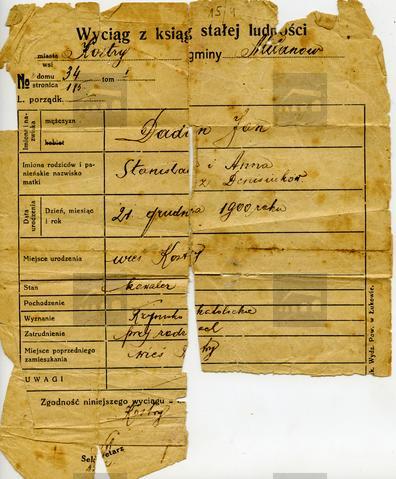 15/4
Wyciąg z ksiąg stałej ludności
miasta wsi Kożby gminy Mianów
№ domu 34 tom 1
stronica 185
L. porządk.
Imione i nazwiska mężczyzn kobiet Dadun Jan
Imiona rodziców i panieńskie nazwisko matki Stanisław i Anna z Denisiuków
Data urodzenia Dzień, miesiąc i rok 21 grudnia 1900 roku
Miejsce urodzenia wieś
Stan kawaler
Pochodzenie
Wyznanie Rzymsko katolickie
Zatrudnienie przy
Miejsce poprzedniego zamieszkania wieś
UWAGI
Zgodność niniejszego wyciągu
Sekretarz
k. Wydz. Pow. w Łukowie.